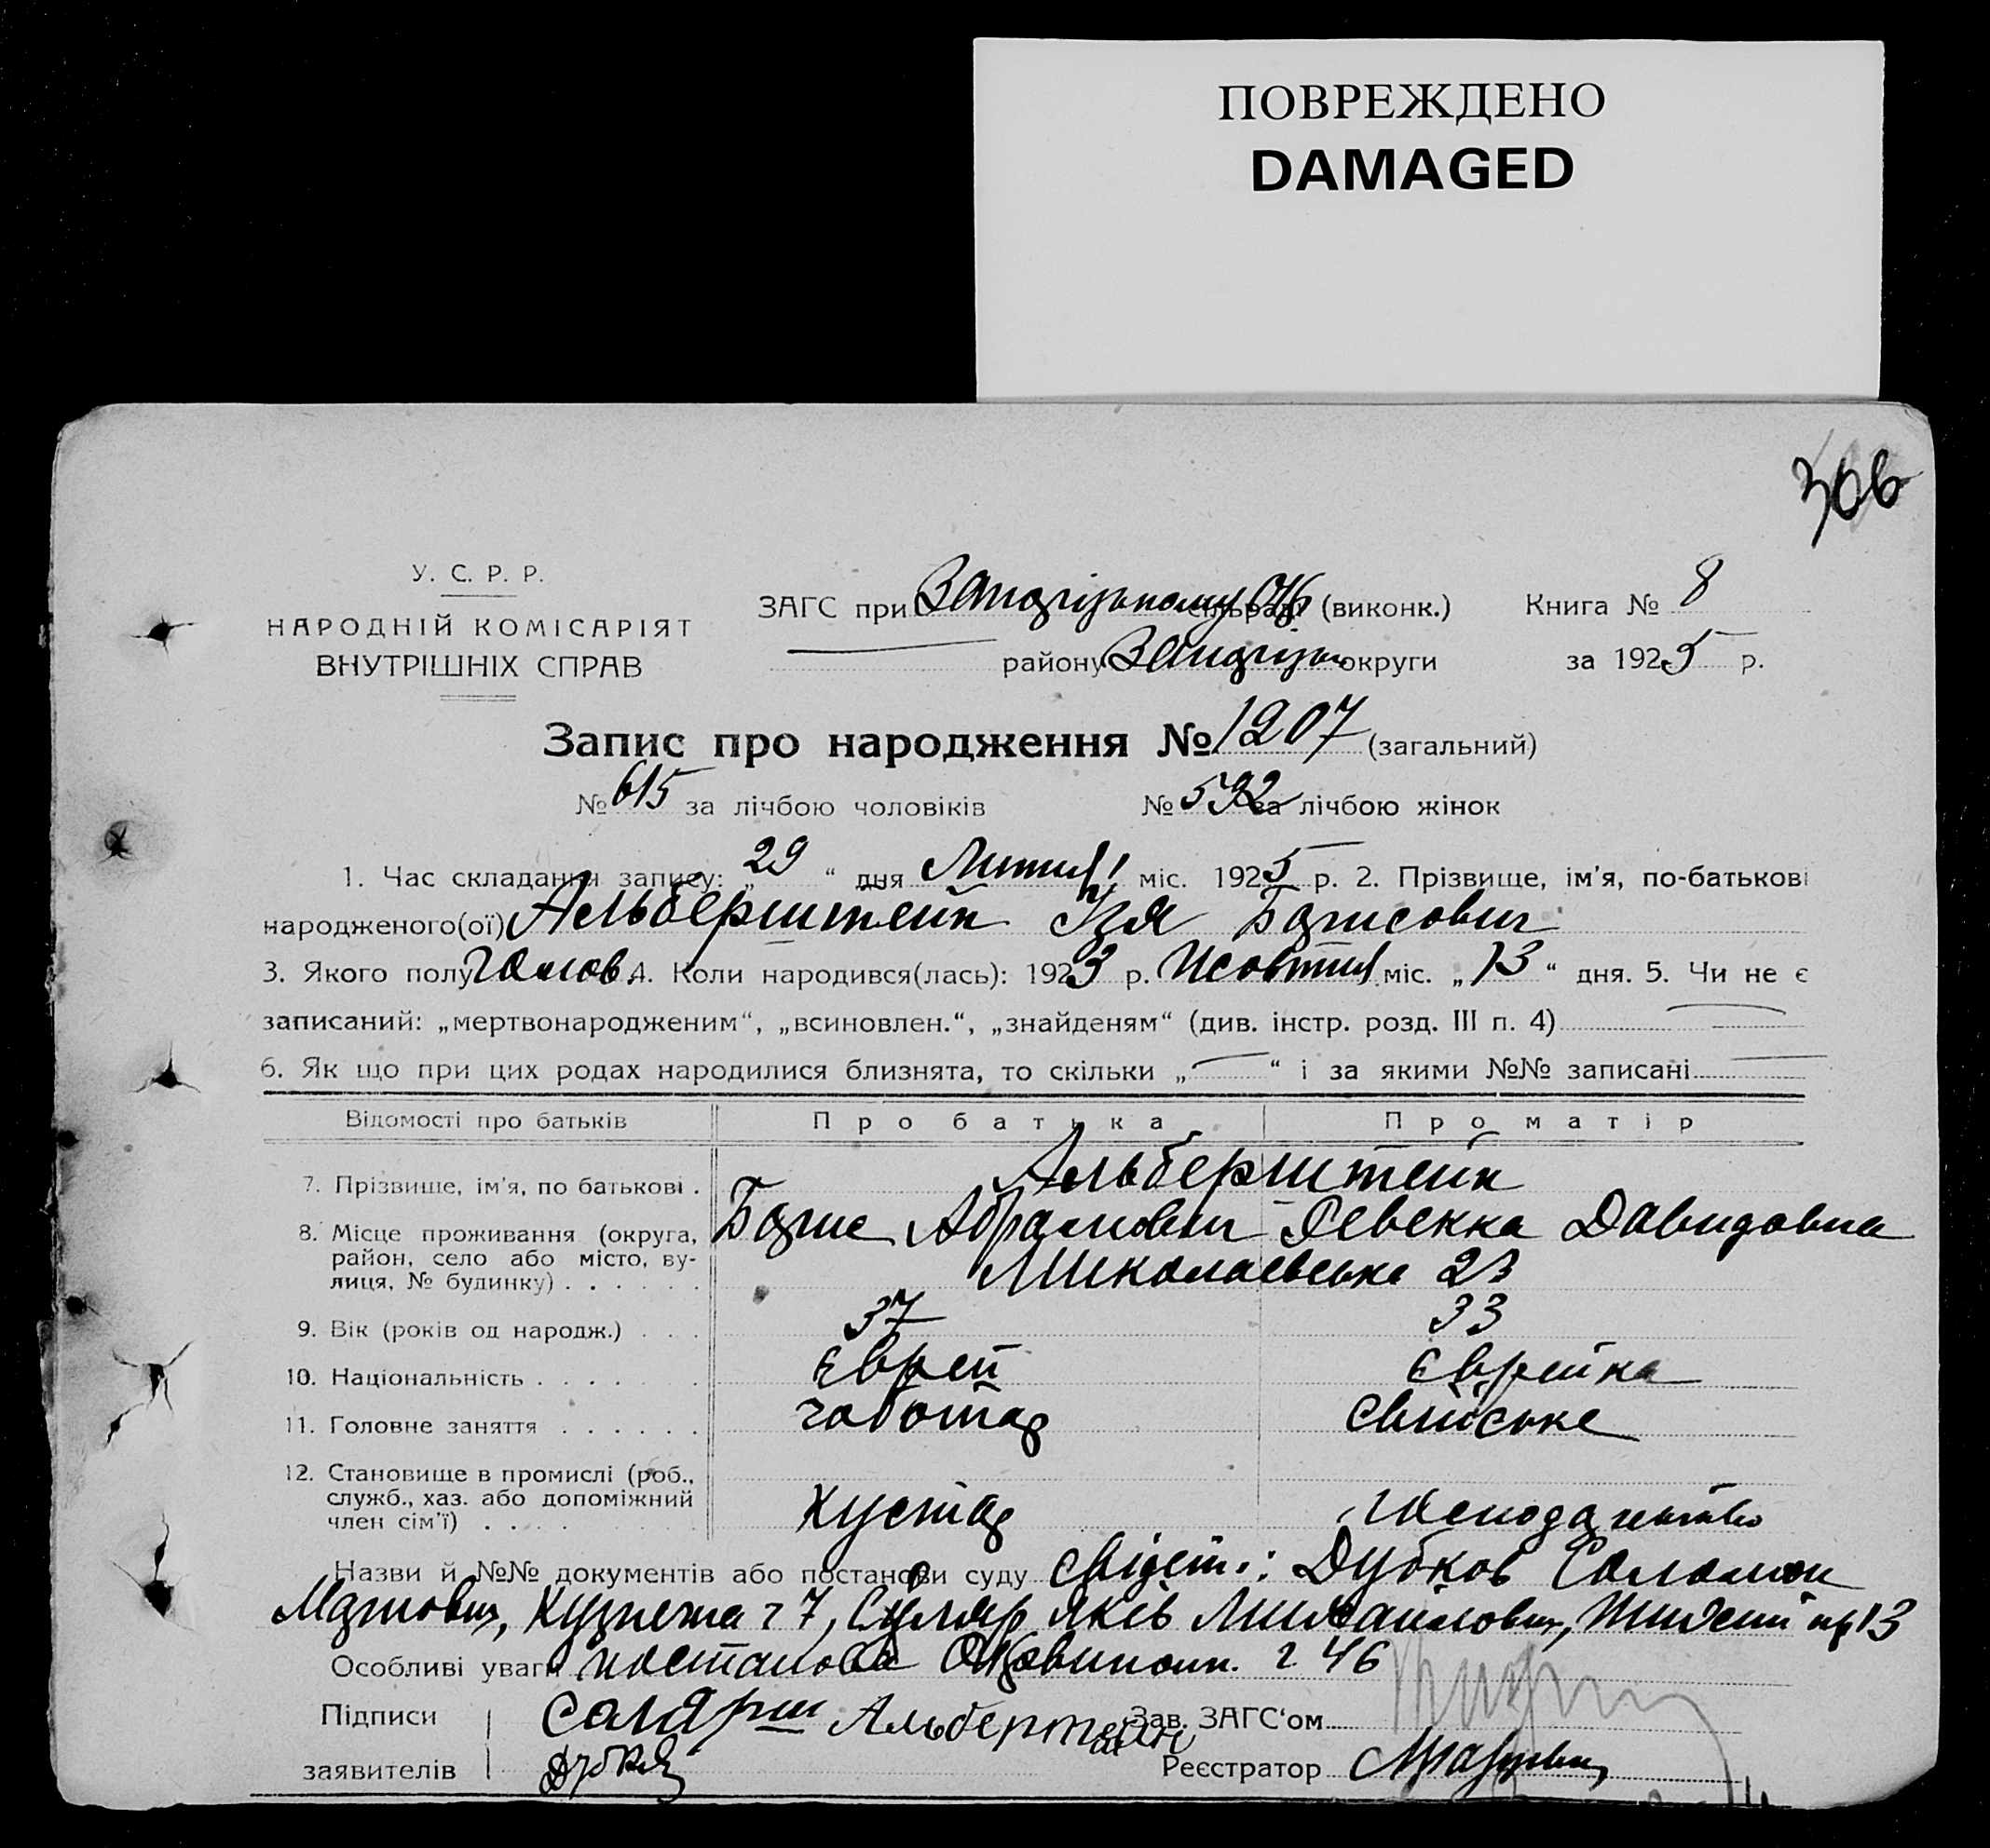 ПОВРЕЖДЕНО
DAMAGED
306
У. С. Р. Р.
НАРОДНІЙ КОМІСАРІЯТ
ВНУТРІШНІХ СПРАВ
ЗАГС при сільраді (виконк.) Книга № 8
району округи за 1925 р.
Запис про народження № 1207 (загальний)
№ 615 за лічбою чоловіків № 592 за лічбою жінок
1. Час складання запису: „ 29 “ дня міс. 1925 р. 2. Прізвище, ім'я, по-батькові
народженого(ої) Альберштейн Ізя Борисович
3. Якого полу 4. Коли народився(лась): 1923 р. Жовтня міс. „ 13 “ дня. 5. Чи не є
записаний: „мертвонародженим“, „всиновлен.“, „знайденям“ (див. інстр. розд. III п. 4)
6. Як що при цих родах народилися близнята, то скільки „ “ і за якими №№ записані
Відомості про батьків Про батька Про матір
7. Прізвище, ім'я, по батькові . Альберштейн
Борис Абрамович Ревекка Давидовна
8. Місце проживання (округа, район, село або місто, вулиця, № будинку) . . . . . . Миколаевська 23
9. Вік (років од народж.) . . . 37 33
10. Національність . . . . . . Єврей Єврейка
11. Головне заняття . . . . . . чоботар Свійське
12. Становище в промислі (роб., служб., хаз. або допоміжний член сім'ї) . . . . Кустар господарство
Назви й №№ документів або постанови суду свідет.: Дубков Соломон
Маркович, Кузнечна 7, Столяр Яків Михайлович, 13
Особливі уваги постанова 46
Підписи Столярш Альберштейн Зав. ЗАГС'ом
заявителів Дубков Реєстратор